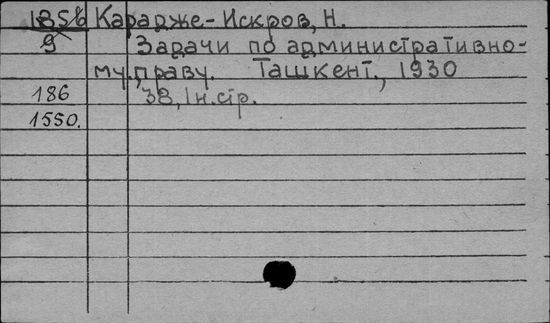 1856 Карадже-Искров, Н.
9 Задачи по административно-
му праву. Ташкент., 1930
186 38, 1 н.стр.
1550.